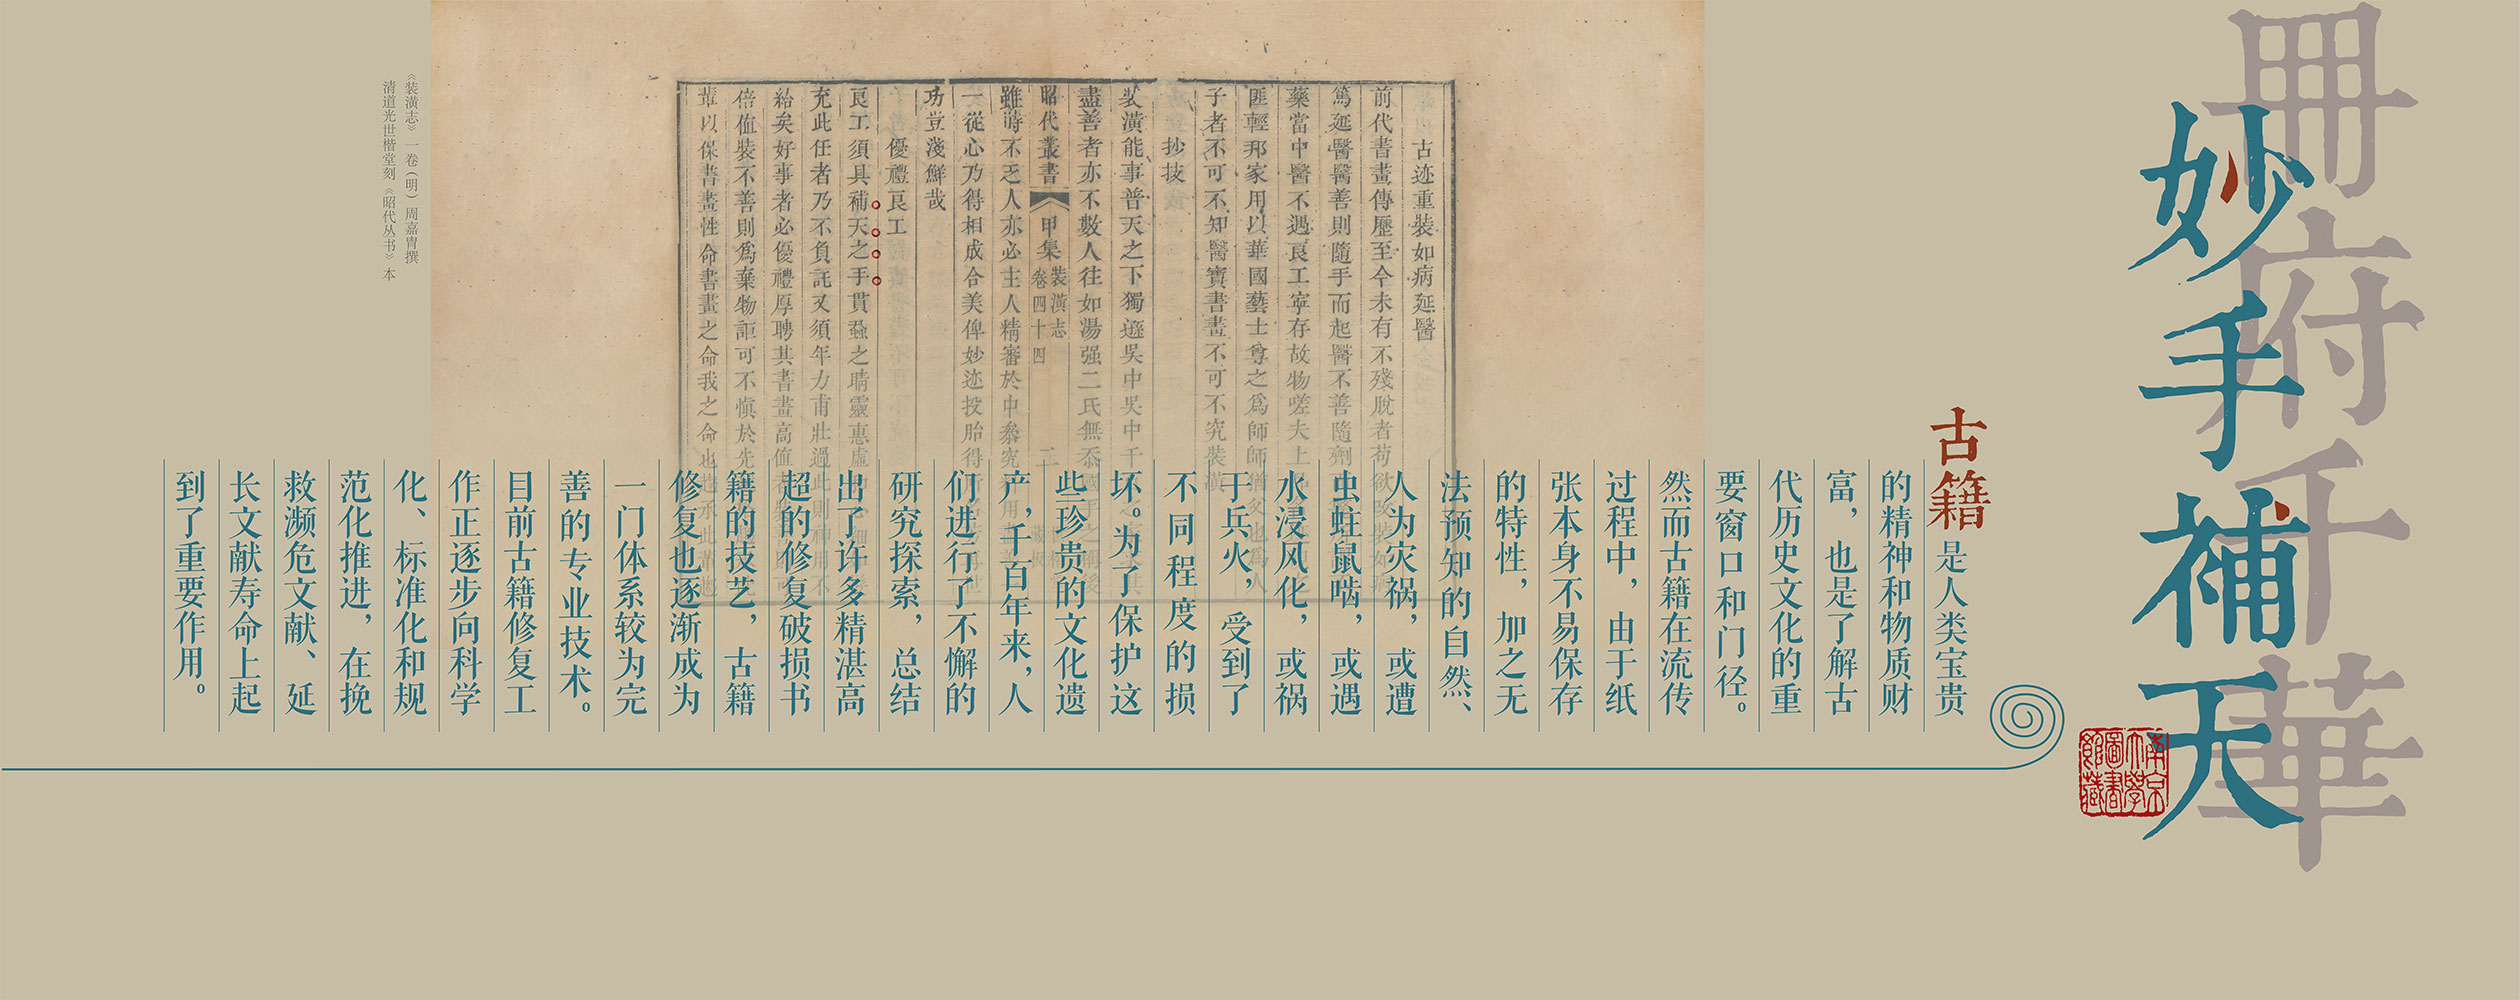 冊府千華
妙手補天
南京大學圖書館藏
古籍是人类宝贵
的精神和物质财
富，也是了解古
代历史文化的重
要窗口和门径。
然而古籍在流传
过程中，由于纸
张本身不易保存
的特性，加之无
法预知的自然、
人为灾祸，或遭
虫蛀鼠啮，或遇
水浸风化，或祸
于兵火，受到了
不同程度的损
坏。为了保护这
些珍贵的文化遗
产，千百年来，人
们进行了不懈的
研究探索，总结
出了许多精湛高
超的修复破损书
籍的技艺，古籍
修复也逐渐成为
一门体系较为完
善的专业技术。
目前古籍修复工
作正逐步向科学
化、标准化和规
范化推进，在挽
救濒危文献、延
长文献寿命上起
到了重要作用。
古迹重裝如病延醫
前代書畫傳歷至今未有不殘脫者苟欲改裝如病
篤延醫醫善則隨手而起醫不善隨劑
藥當中醫不遇良工寧存故物嗟夫上
匪輕邦家用以華國藝士尊之爲師師猶父也爲人
子者不可不知醫寶書畫不可不究裝潢
妙技
裝潢能事普天之下獨遜吳中吳中千
盡善者亦不數人往如湯强二氏無忝國手之稱後
昭代叢書
甲集
裝潢志
卷四十四
雖時不乏人亦必主人精審於中參究
一從心乃得相成合美俾妙迹投胎得
功豈淺鮮哉
優禮良工
良工須具補天之手貫蝨之睛靈惠虛
充此任者乃不負託又須年力甫壯過此則神用不
給矣好事者必優禮厚聘其書畫高值
倍值裝不善則爲棄物詎可不慎於先
輩以保書畫性命書畫之命我之命也
《裝潢志》一卷（明）周嘉胄撰
清道光世楷堂刻《昭代丛书》本